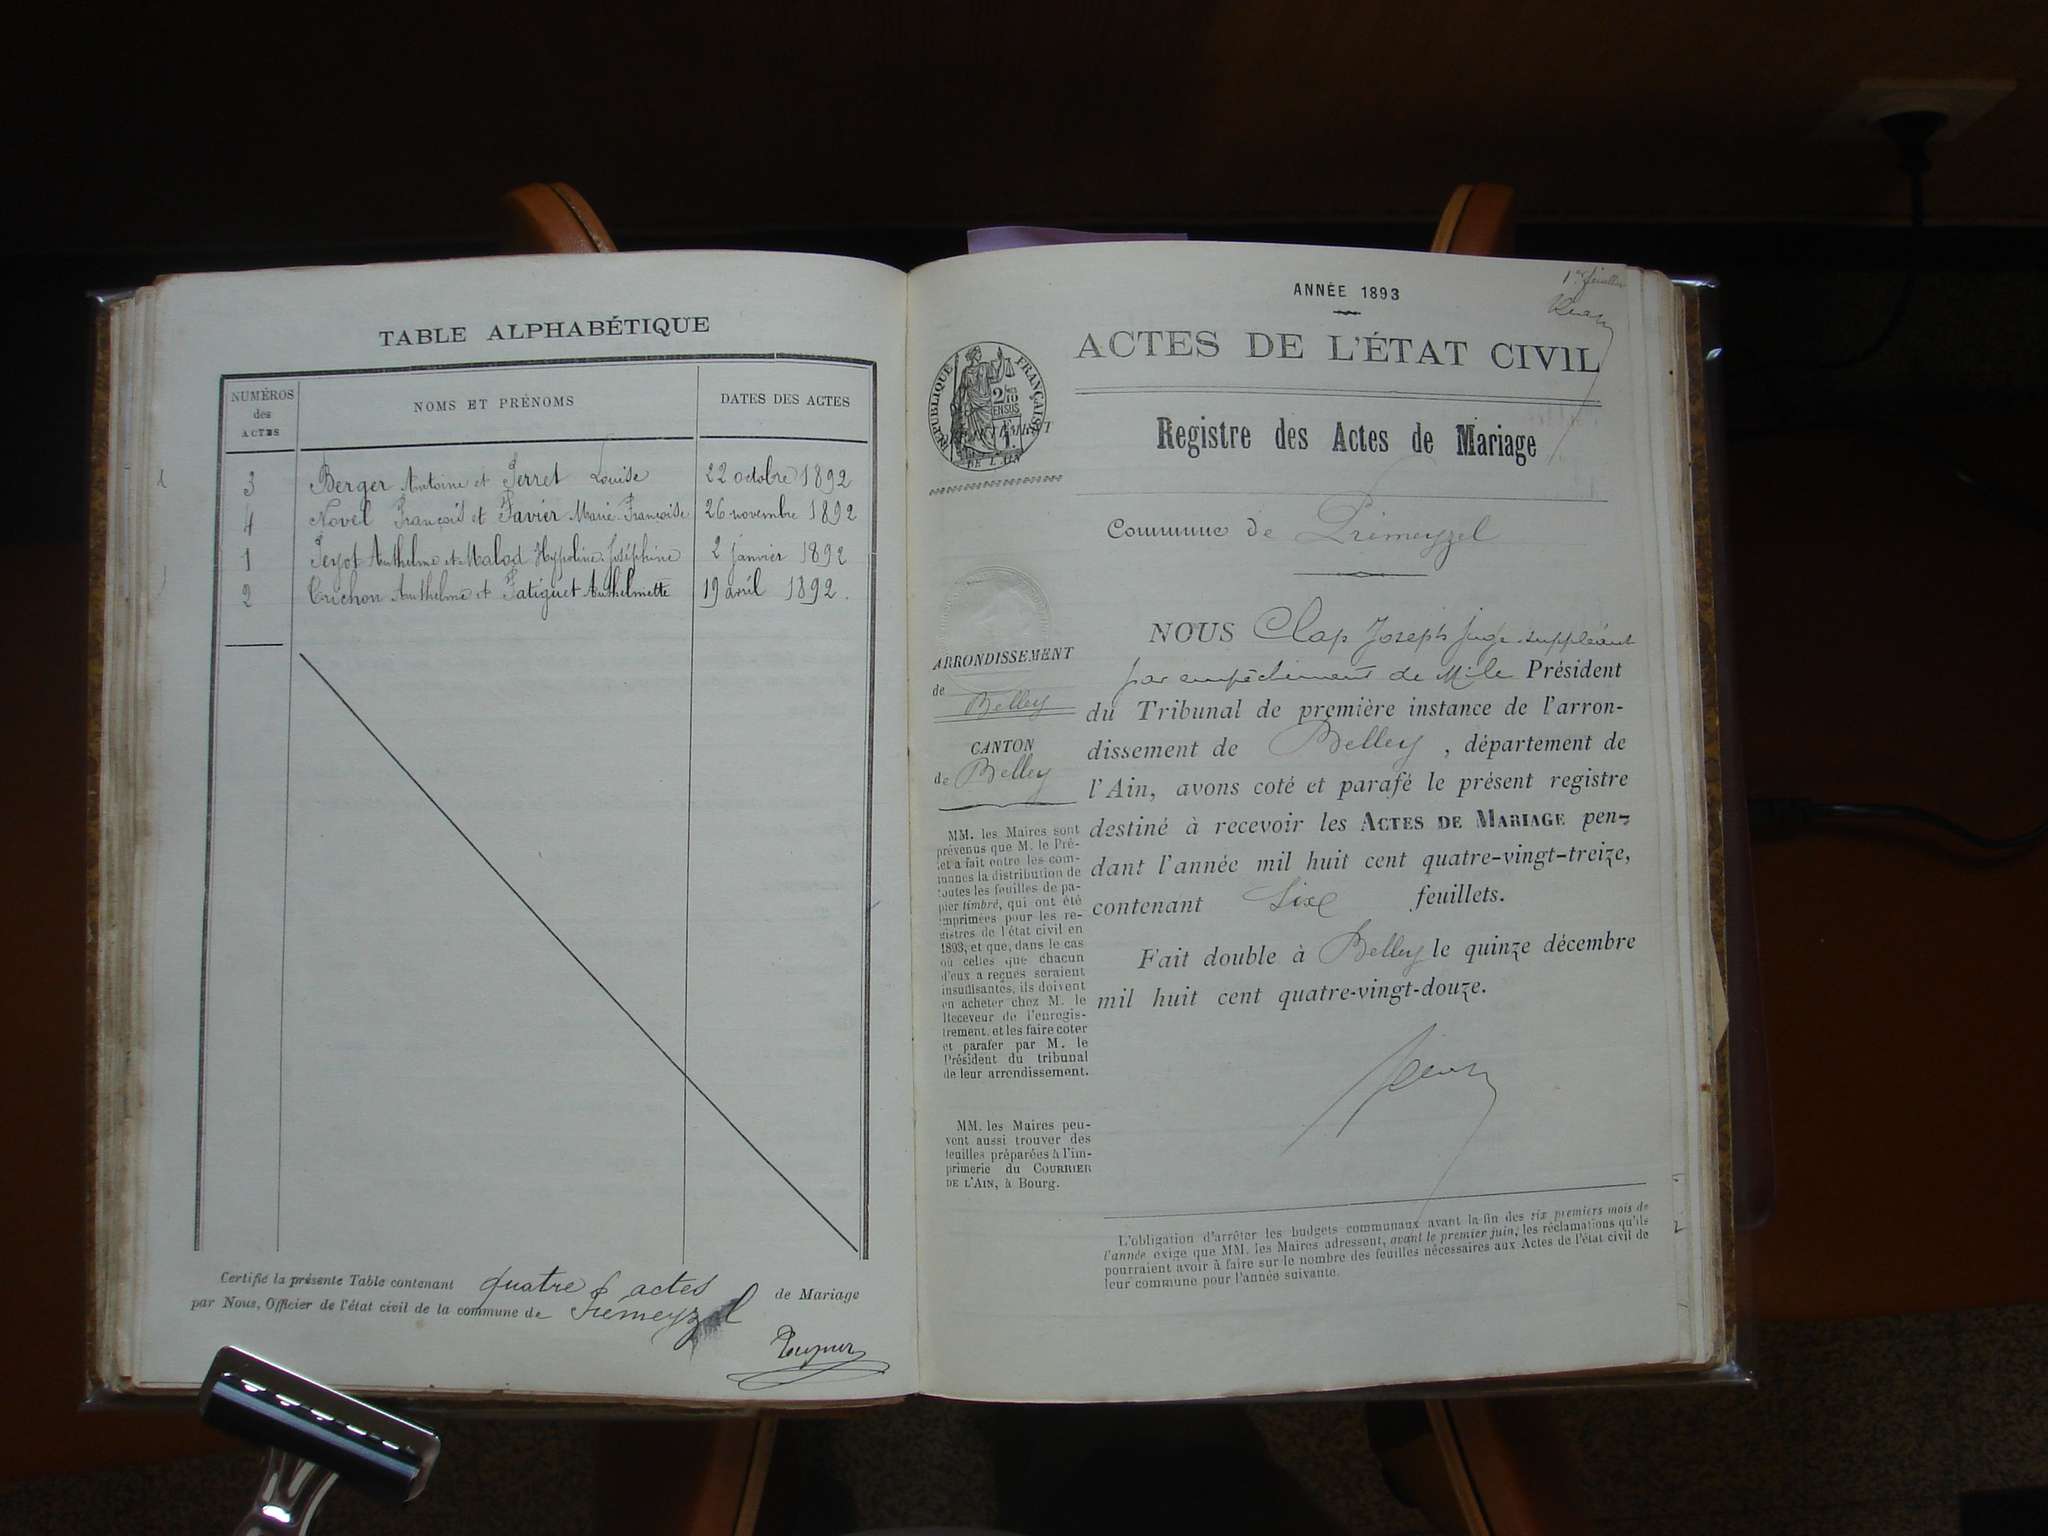 TABLE ALPHABÉTIQUE
NUMÉROS
des
ACTES
NOMS ET PRÉNOMS
DATES DES ACTES
3 Berger Antoine et Perret Louise 22 octobre 1892
4 Novel François et Favier Marie Françoise 26 novembre 1892
1 Peyot Anthelme et Malod Hypoline Joséphine 2 janvier 1892
2 Trichon Anthelme et Patiguet Anthelmette 19 avril 1892.
Certifié la présente Table contenant quatre actes de Mariage
par Nous, Officier de l'état civil de la commune de Prémeyzel
1er feuillet
ANNÉE 1893
ACTES DE L'ÉTAT CIVIL
RÉPUBLIQUE FRANÇAISE
2/10
EN SUS
DE L'AIN
Registre des Actes de Mariage
Commune de Prémeyzel
ARRONDISSEMENT
de
Belley
CANTON
de Belley
MM. les Maires sont
prévenus que M. le Pré-
et a fait entre les com-
munes la distribution de
toutes les feuilles de pa-
pier timbré, qui ont été
imprimées pour les re-
gistres de l'état civil en
1893, et que, dans le cas
où celles que chacun
d'eux a reçues seraient
insuffisantes, ils doivent
en acheter chez M. le
Receveur de l'enregis-
trement, et les faire coter
et parafer par M. le
Président du tribunal
de leur arrondissement.
MM. les Maires peu-
vent aussi trouver des
feuilles préparées à l'im-
primerie du COURRIER
DE L'AIN, à Bourg.
NOUS Clap Joseph juge suppléant
par empêchement de M. le Président
du Tribunal de première instance de l'arron-
dissement de Belley, département de
l'Ain, avons coté et parafé le présent registre
destiné à recevoir les ACTES DE MARIAGE pen-
dant l'année mil huit cent quatre-vingt-treize,
contenant six feuillets.
Fait double à Belley le quinze décembre
mil huit cent quatre-vingt-douze.
L'obligation d'arrêter les budgets communaux avant la fin des six premiers mois de
l'année exige que MM. les Maires adressent, avant le premier juin, les réclamations qu'ils
pourraient avoir à faire sur le nombre des feuilles nécessaires aux Actes de l'état civil de
leur commune pour l'année suivante.